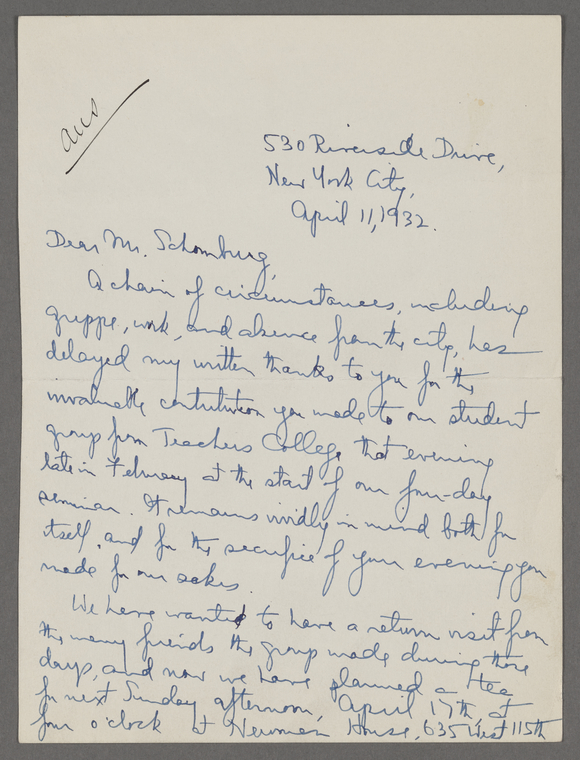 ans
530 Riverside Drive,
New York City,
April 11, 1932.
Dear Mr. Schomburg,
A chain of circumstances, including
grippe, work, and absence from the city, has
delayed my written thanks to you for the
invaluable contribution you made to our student
group from Teachers College that evening
late in February at the start of our four-day
seminar. It remains vividly in mind both for
itself, and for the sacrifice of your evening you
made for our sakes.
We have wanted to have a return visit from
the many friends the group made during those
days, and now we have planned a tea
for next Sunday afternoon, April 17th, at
four o'clock at Newman House, 635 West 115th